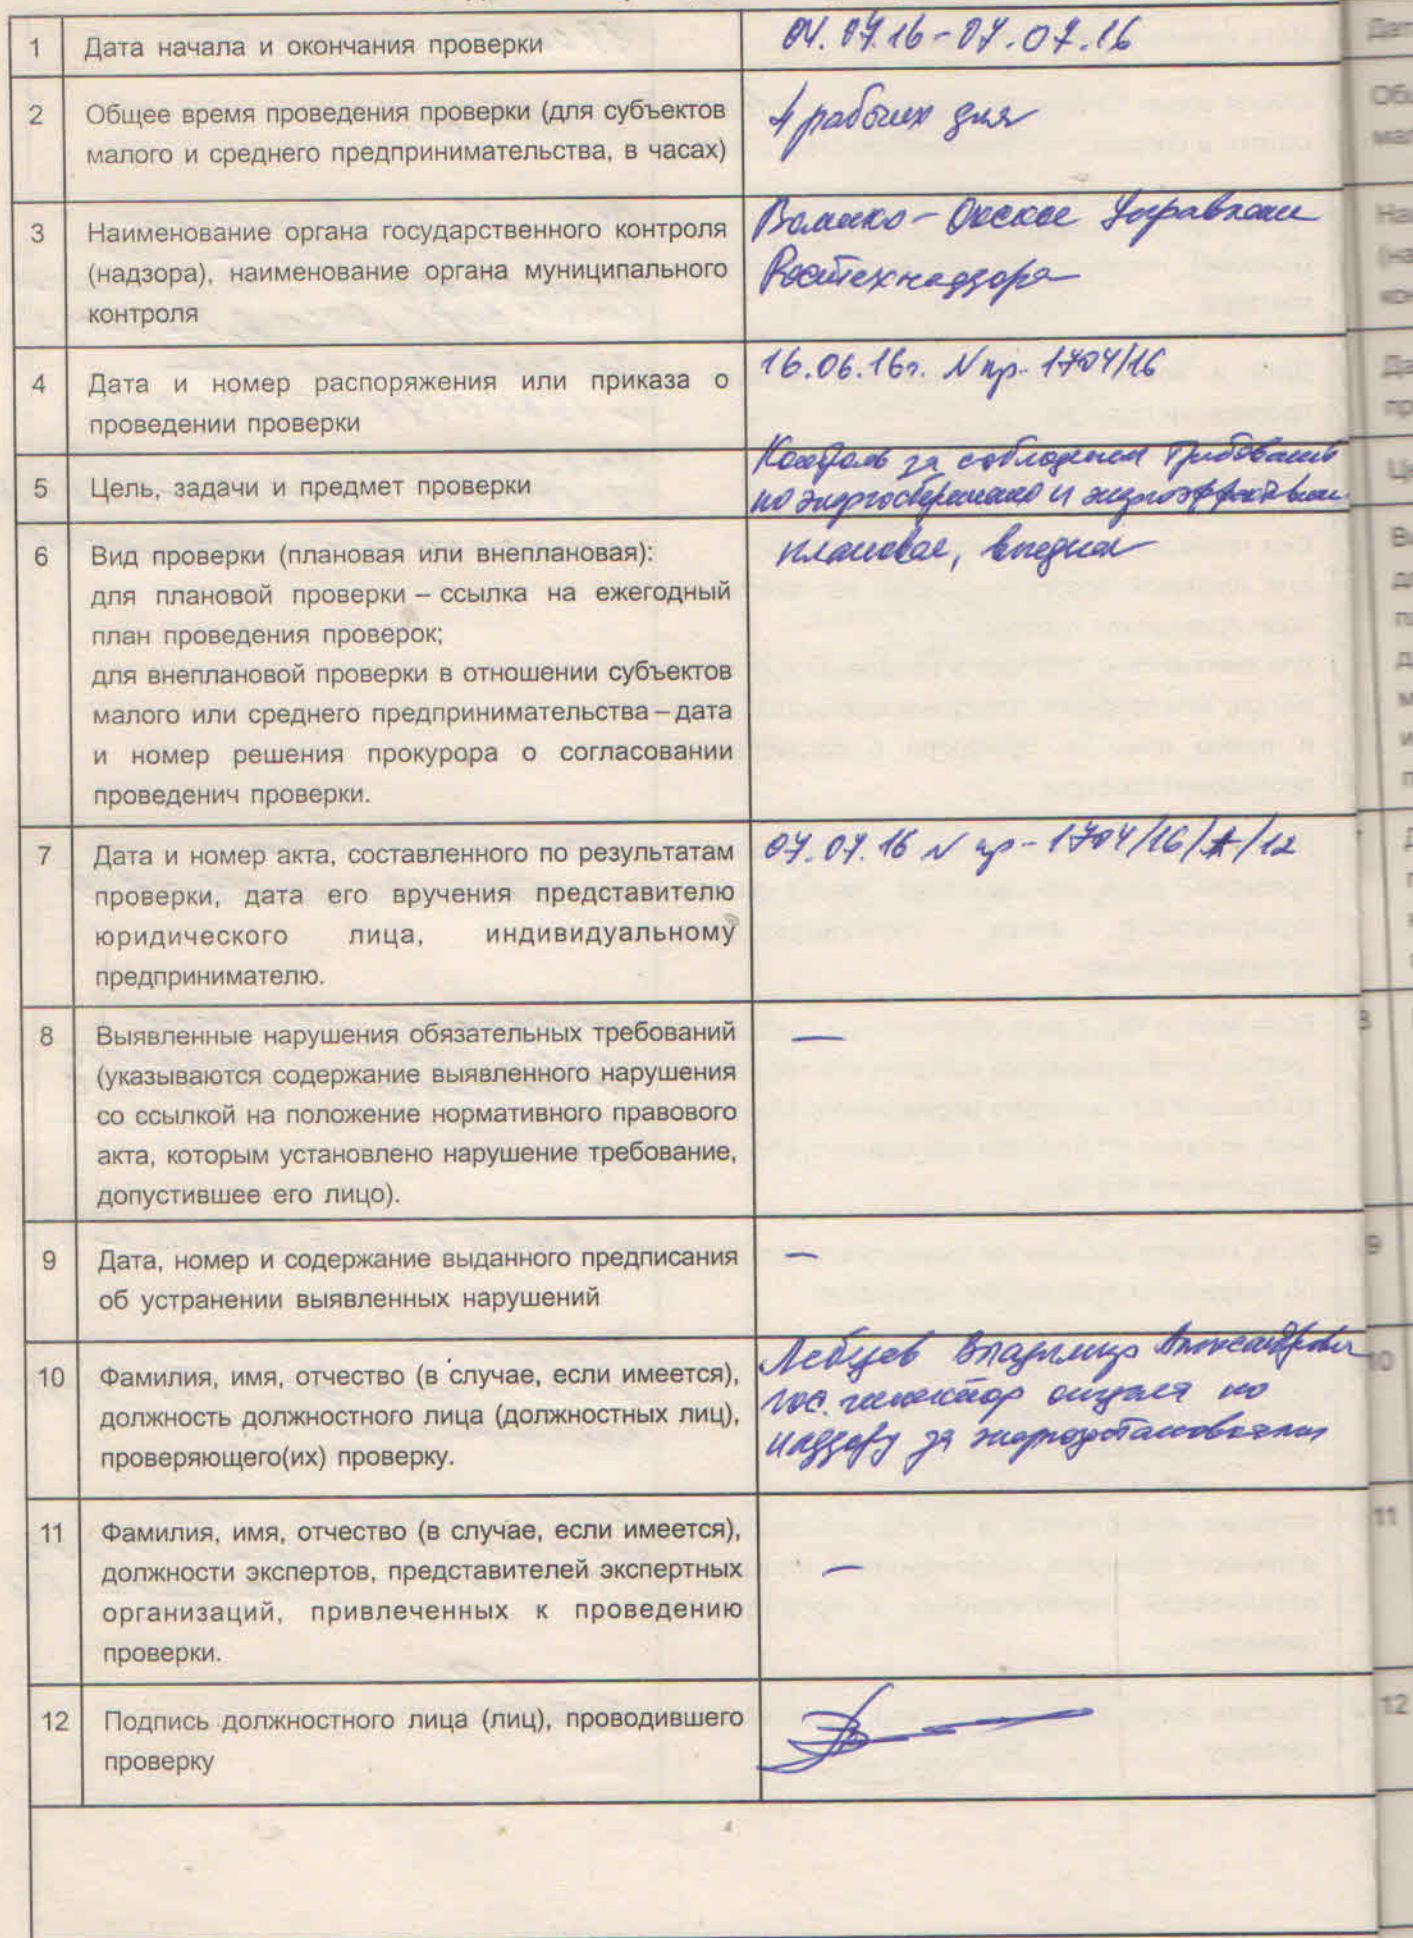 1 Дата начала и окончания проверки
04.07.16-07.07.16
2 Общее время проведения проверки (для субъектов
малого и среднего предпринимательства, в часах)
4 рабочих дня
3 Наименование органа государственного контроля
(надзора), наименование органа муниципального
контроля
Волжско-Окское Управление
Ростехнадзора
4 Дата и номер распоряжения или приказа о
проведении проверки
16.06.16г. N пр-1704/16
5 Цель, задачи и предмет проверки
Контроль за соблюдением требований
по энергосбережению и
6 Вид проверки (плановая или внеплановая):
для плановой проверки – ссылка на ежегодный
план проведения проверок;
для внеплановой проверки в отношении субъектов
малого или среднего предпринимательства – дата
и номер решения прокурора о согласовании
проведенич проверки.
плановая, выездная
7 Дата и номер акта, составленного по результатам
проверки, дата его вручения представителю
юридического лица, индивидуальному
предпринимателю.
07.07.16 N пр-1704/16/А/12
8 Выявленные нарушения обязательных требований
(указываются содержание выявленного нарушения
со ссылкой на положение нормативного правового
акта, которым установлено нарушение требование,
допустившее его лицо).
—
9 Дата, номер и содержание выданного предписания
об устранении выявленных нарушений
—
10 Фамилия, имя, отчество (в случае, если имеется),
должность должностного лица (должностных лиц),
проверяющего(их) проверку.
Владимир Александрович
гос. инспектор отдела по
надзору за энергоустановками
11 Фамилия, имя, отчество (в случае, если имеется),
должности экспертов, представителей экспертных
организаций, привлеченных к проведению
проверки.
—
12 Подпись должностного лица (лиц), проводившего
проверку